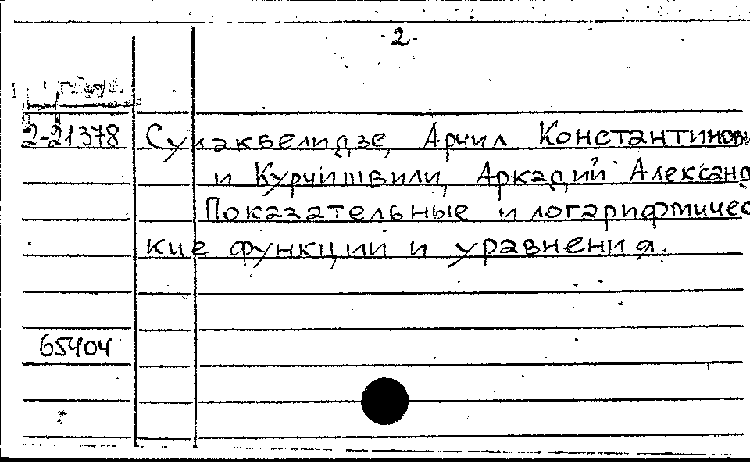 -2-
2-21378 Сулаквелидзе, Арчил Константинови
и Курчишвили, Аркадий Александ
Показательные и логарифмичес
кие функции и уравнения.
65404